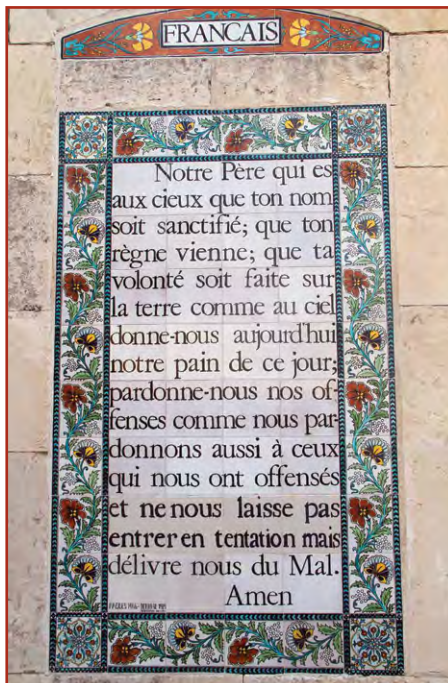 FRANCAIS
Notre Père qui es
aux cieux que ton nom
soit sanctifié; que ton
règne vienne; que ta
volonté soit faite sur
la terre comme au ciel
donne-nous aujourd'hui
notre pain de ce jour;
pardonne-nous nos of-
fenses comme nous par-
donnons aussi à ceux
qui nous ont offensés
et ne nous laisse pas
entrer en tentation mais
délivre nous du Mal.
Amen